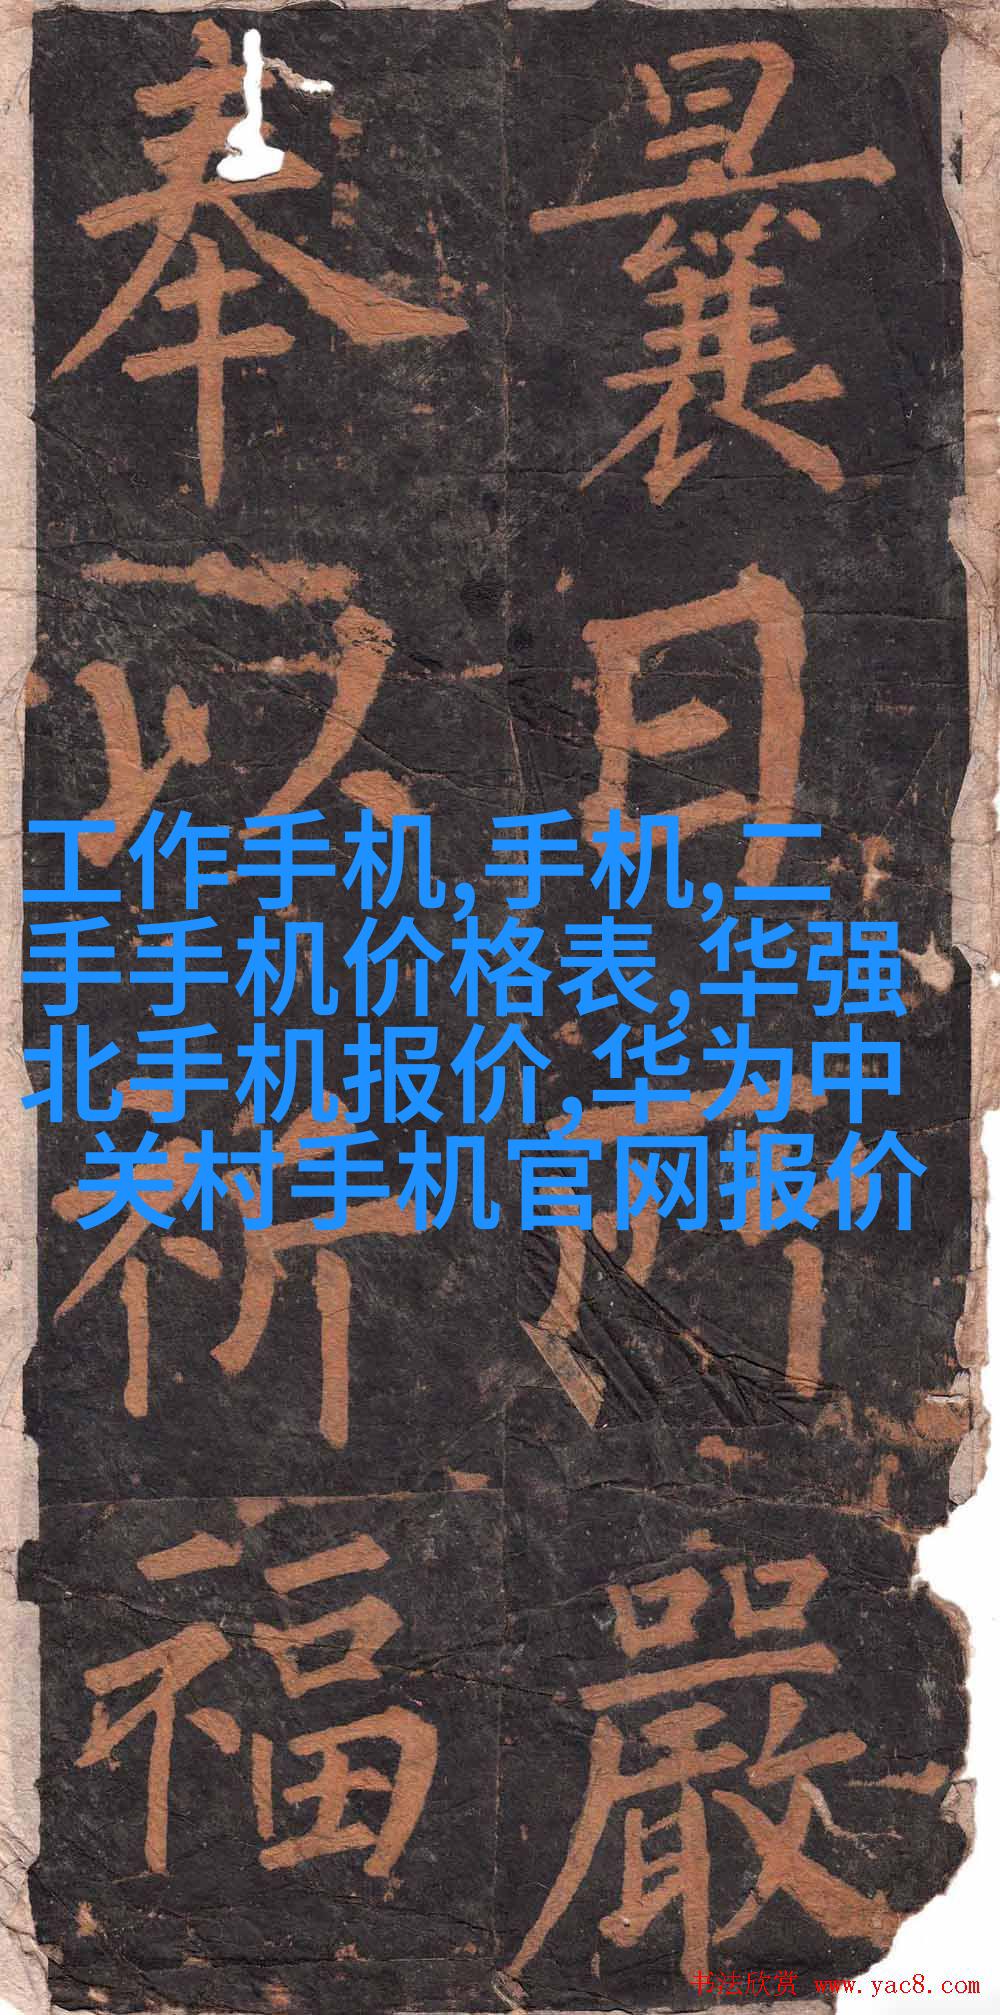 曩日所嚴
奉以祈福
工作手机,手机,二
手手机价格表,华强
北手机报价,华为中
关村手机官网报价
书法欣赏 www.yac8.com